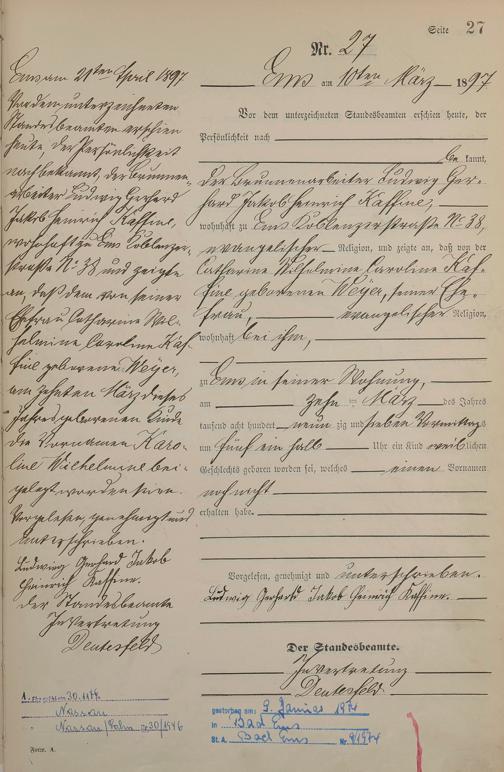 Seite 27
Nr. 27
Ems am 10ten März 1897
Vor dem unterzeichneten Standesbeamten erschien heute, der
Persönlichkeit nach
be kannt,
der Brunnenarbeiter Ludwig Ger-
hard Jakob Heinrich Kaffine,
wohnhaft zu Ems Koblenzerstraße No 38,
evangelischer Religion, und zeigte an, daß von der
Catharine Wilhelmine Caroline Kaf-
fine geborenen Weyer, seiner Ehe-
frau, evangelischer Religion,
wohnhaft bei ihm,
zu Ems in seiner Wohnung,
am zehn ten März des Jahres
tausend acht hundert neun zig und sieben Vormittags
um fünf ein halb Uhr ein Kind weib lichen
Geschlechts geboren worden sei, welches einen Vornamen
noch nicht
erhalten habe.
Vorgelesen, genehmigt und unterschrieben.
Ludwig Gerhard Jakob Heinrich Kaffine.
Der Standesbeamte.
In Vertretung
Deutesfeld
Ems am 21ten April 1897
Vor dem unterzeichneten
Standesbeamten erschien
heute, der Persönlichkeit
nach bekannt, der Brunnen-
arbeiter Ludwig Gerhard
Jakob Heinrich Kaffine,
wohnhaft zu Ems Koblenzer-
straße No 38 und zeigte
an, daß dem von seiner
Ehefrau Catharine Wil-
helmine Caroline Kaf-
fine geborene Weyer,
am zehnten März dieses
Jahres geborenen Kinde
die Vornamen Karo-
line Wilhelmine bei-
gelegt worden seien.
Vorgelesen, genehmigt und
unterschrieben.
Ludwig Gerhard Jakob
Heinrich Kaffine.
Der Standesbeamte
In Vertretung
Deutesfeld
1. 30.
Nassau
Nassau/Lahn 30/1946
gestorben am: 9. 1974
in Bad Ems
St. A. Bad Ems Nr. 9/1974
Form. A.